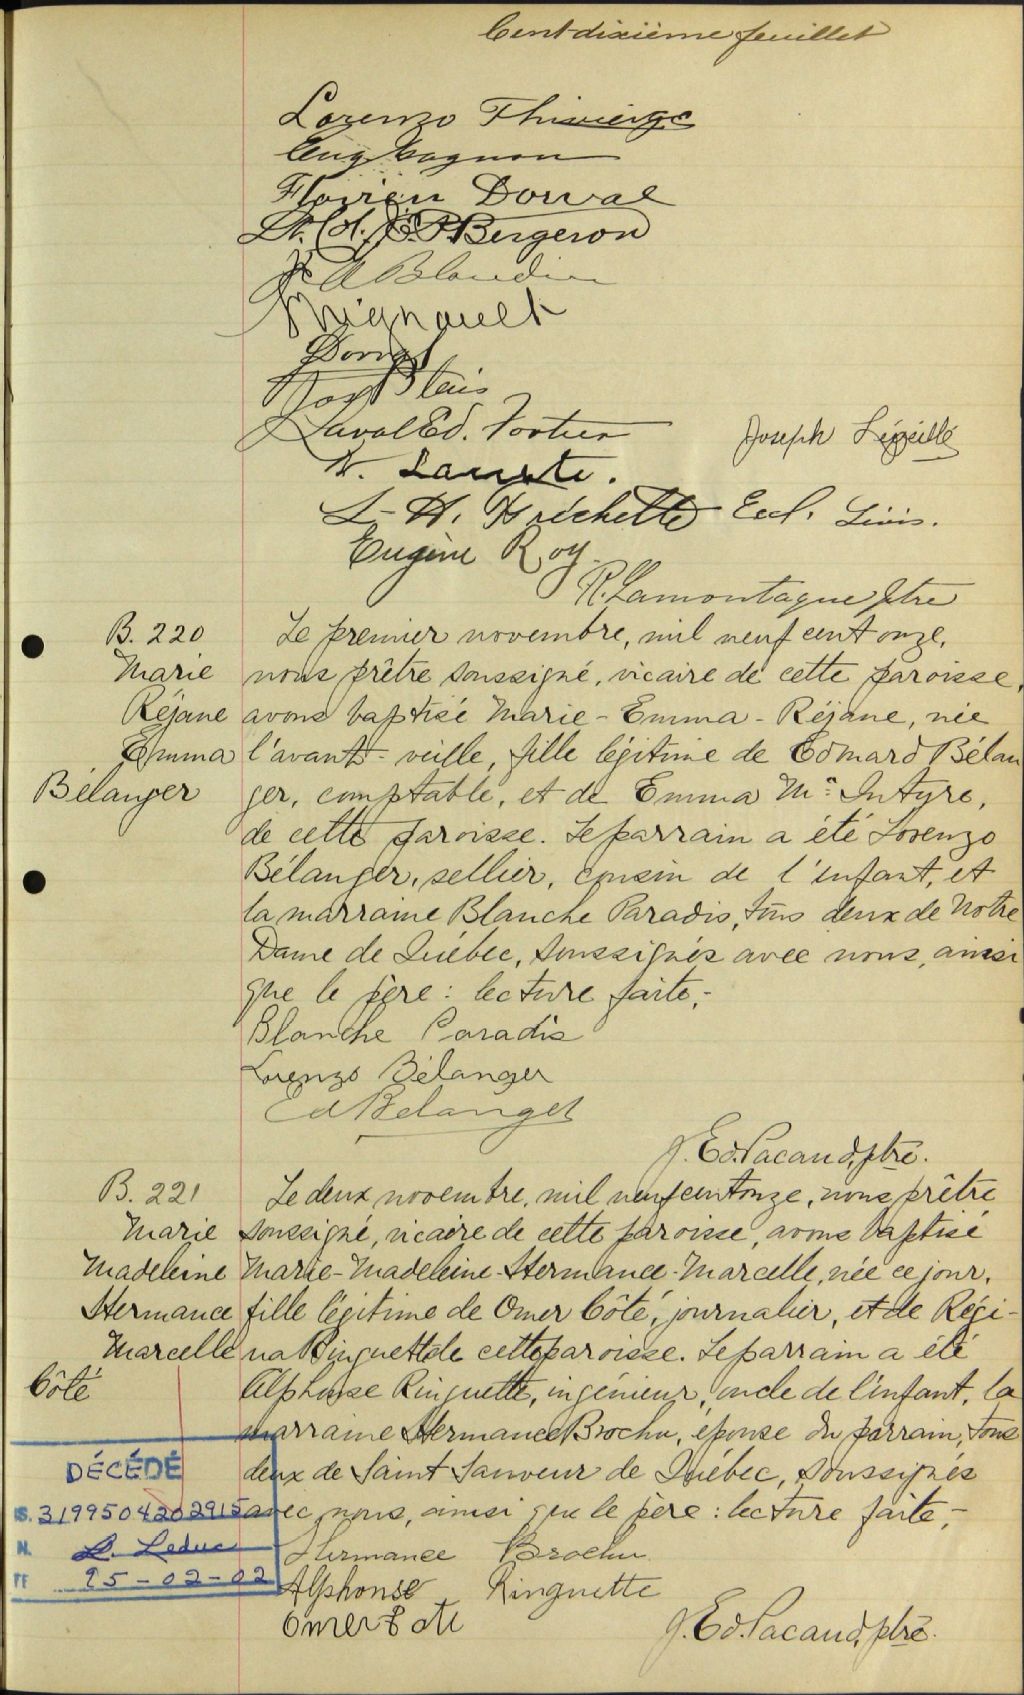 Cent-dixième feuillet
Lorenzo Thivierge
Eug Gagnon
Florien Dorval
Lt. Col. J. E. P. Bergeron
A Blondin
Mignault
Dorval
Jos Blais
Laval Ed. Fortier
Joseph
L-H. Fréchette Eccl. Lévis.
Eugène Roy
R. Lamontagne ptre
B. 220
Marie
Réjane
Emma
Bélanger
Le premier novembre, mil neuf cent onze,
nous prêtre soussigné, vicaire de cette paroisse,
avons baptisé Marie-Emma-Réjane, née
l'avant-veille, fille légitime de Edmard Bélan
ger, comptable, et de Emma Mc Intyre,
de cette paroisse. Le parrain a été Lorenzo
Bélanger, sellier, cousin de l'enfant, et
la marraine Blanche Paradis, tous deux de Notre
Dame de Québec, soussignés avec nous, ainsi
que le père: lecture faite,-
Blanche Paradis
Lorenzo Bélanger
Ed Belanger
J. Ed. Pacaud, ptre.
B. 221
Marie
Madeleine
Hermance
Marcelle
Côté
Le deux novembre, mil neuf cent onze, nous prêtre
soussigné, vicaire de cette paroisse, avons baptisé
Marie-Madeleine-Hermance-Marcelle, née ce jour,
fille légitime de Omer Côté, journalier, et de Régi-
na Ringuette de cette paroisse. Le parrain a été
Alphonse Ringuette, ingénieur, oncle de l'enfant, la
marraine Hermance Brochu, épouse du parrain, tous
deux de Saint Sauveur de Québec, soussignés
avec nous, ainsi que le père: lecture faite,-
Hermance Brochu
Alphonse Ringuette
Omer Coté
J. Ed. Pacaud, ptre.
DÉCÉDÉ
S. 3199504202915
N. L. Leduc
FF 95-02-02